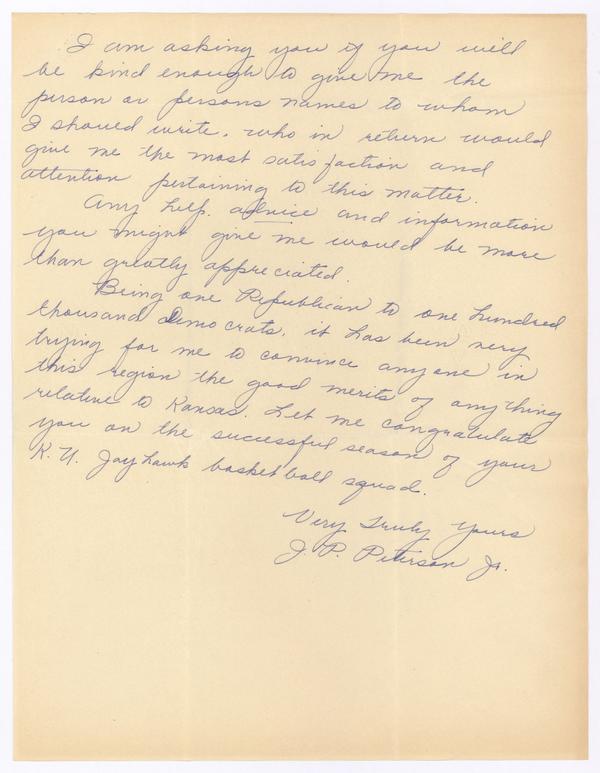 I am asking you if you will
be kind enough to give me the
person or persons names to whom
I should write, who in return would
give me the most satisfaction and
attention pertaining to this matter.
Any help, advice and information
you might give me would be more
than greatly appreciated.
Being one Republican to one hundred
thousand Democrats, it has been very
trying for me to convince anyone in
this region the good merits of anything
relative to Kansas. Let me congratulate
you on the successful season of your
K.U. Jayhawk basketball squad.
Very Truly Yours
J. P. Peterson Jr.